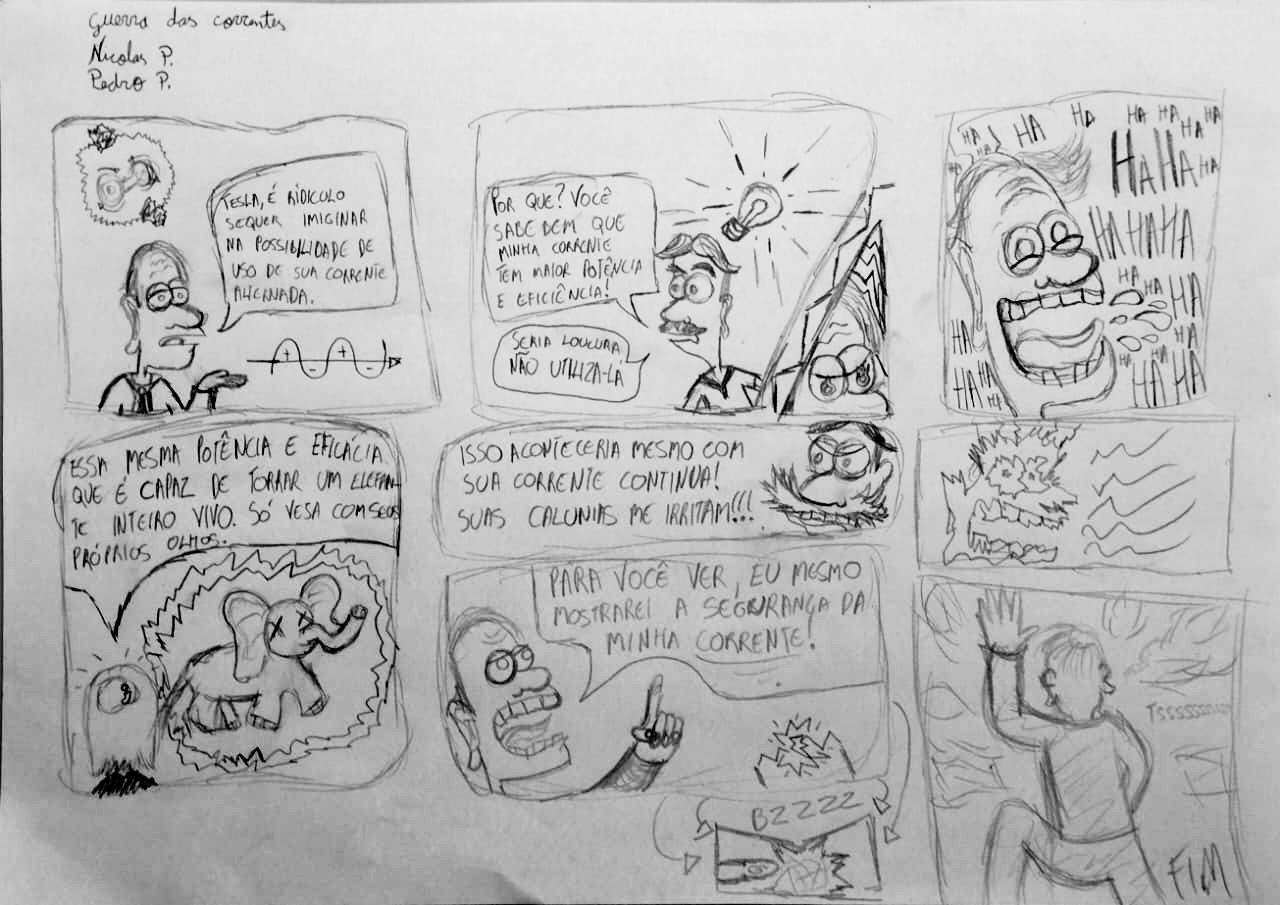 Guerra das correntes
Nicolas P.
Pedro P.
TESLA, É RIDICULO
SEQUER IMIGINAR
NA POSSIBILIDADE DE
USO DE SUA CORRENTE
ALTERNADA.
+ - + -
POR QUE? VOCÊ
SABE BEM QUE
MINHA CORRENTE
TEM MAIOR POTÊNCIA
E EFICIÊNCIA!
SERIA LOUCURA
NÃO UTILIZA-LA
HA HA! HA HA HA HA HA HA
HA HA HA
HA HA HA
HA HA HA
HA HA HA
HA HA HA
HA HA HA HA
ESSA MESMA POTÊNCIA E EFICÁCIA
QUE É CAPAZ DE TORRAR UM ELEFAN-
TE INTEIRO VIVO. SÓ VESA COM SEUS
PRÓPRIOS OLHOS.
ISSO ACONTECERIA MESMO COM
SUA CORRENTE CONTINUA!
SUAS CALUNIAS ME IRRITAM!!!
PARA VOCÊ VER, EU MESMO
MOSTRAREI A SEGURANÇA DA
MINHA CORRENTE!
BZZZZ
TSSSSSSSSS
FIM